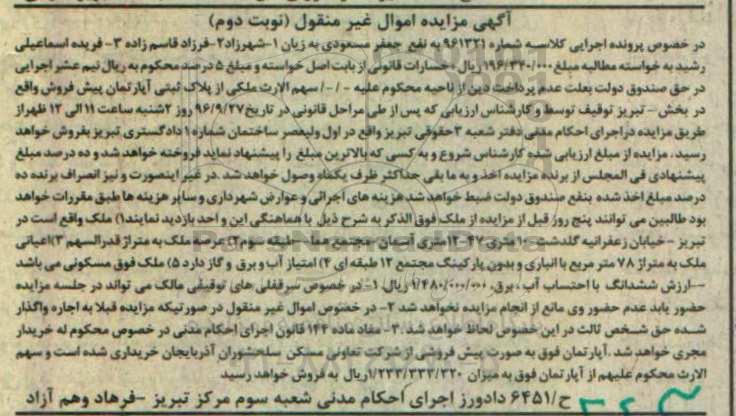 آگهی مزایده اموال غیر منقول (نوبت دوم)
در خصوص پرونده اجرایی کلاسه شماره ۹۶۱۳۲۱ به نفع جعفر مسعودی به زیان ۱-شهرزاد ۲-فرزاد قاسم زاده ۳- فریده اسماعیلی
رشید به خواسته مطالبه مبلغ ۱۹۶/۳۴۰/۰۰۰ ریال، خسارات قانونی از بابت اصل خواسته و مبلغ ۵ درصد محکوم به ریال نیم عشر اجرایی
در حق صندوق دولت بعلت عدم پرداخت دین از ناحیه محکوم علیه -/-/ سهم الارث ملکی از پلاک ثبتی آپارتمان پیش فروش واقع
در بخش - تبریز توقیف توسط و کارشناس ارزیابی که پس از طی مراحل قانونی در تاریخ ۹۶/۹/۲۷ روز ۲شنبه ساعت ۱۱ الی ۱۲ ظهر از
طریق مزایده در اجرای احکام مدنی دفتر شعبه ۳ حقوقی تبریز واقع در اول ولیعصر ساختمان شماره ۱ دادگستری تبریز بفروش خواهد
رسید. مزایده از مبلغ ارزیابی شده کارشناس شروع و به کسی که بالاترین مبلغ را پیشنهاد نماید فروخته خواهد شد و ده درصد مبلغ
پیشنهادی فی المجلس از برنده مزایده اخذ و به ما بقی حداکثر ظرف یکماه وصول خواهد شد. در غیر اینصورت و نیز انصراف برنده ده
درصد مبلغ اخذ شده بنفع صندوق دولت ضبط خواهد شد هزینه های اجرائی و عوارض شهرداری و سایر هزینه ها طبق مقررات خواهد
بود طالبین می توانند پنج روز قبل از مزایده از ملک فوق الذکر به شرح ذیل با هماهنگی این واحد بازدید نمایند ۱) ملک واقع است در
تبریز - خیابان زعفرانیه گلدشت ۱۰ متری ۴۷-۱۲ متری آسمان - مجتمع صبا - طبقه سوم ۲) عرصه ملک به متراژ قدرالسهم ۳) اعیانی
ملک به متراژ ۷۸ متر مربع با انباری و بدون پارکینگ مجتمع ۱۲ طبقه ای ۴) امتیاز آب و برق و گاز دارد ۵) ملک فوق مسکونی می باشد
--ارزش ششدانگ با احتساب آب، برق، ۱/۴۸۰/۰۰۰/۰۰۰ ریال ۱- در خصوص سرقفلی های توقیفی مالک می تواند در جلسه مزایده
حضور یابد عدم حضور وی مانع از انجام مزایده نخواهد شد ۲- در خصوص اموال غیر منقول در صورتیکه مزایده قبلا به اجاره واگذار
شده حق شخص ثالث در این خصوص لحاظ خواهد شد. ۳- مفاد ماده ۱۴۴ قانون اجرای احکام مدنی در خصوص محکوم له خریدار
مجری خواهد شد. آپارتمان فوق به صورت پیش فروشی از شرکت تعاونی مسکن سلحشوران آذربایجان خریداری شده است و سهم
الارث محکوم علیهم از آپارتمان فوق به میزان ۱/۲۳۳/۳۳۳/۳۲۰ ریال به فروش خواهد رسید
ح/۶۴۵۱ دادورز اجرای احکام مدنی شعبه سوم مرکز تبریز -فرهاد وهم آزاد